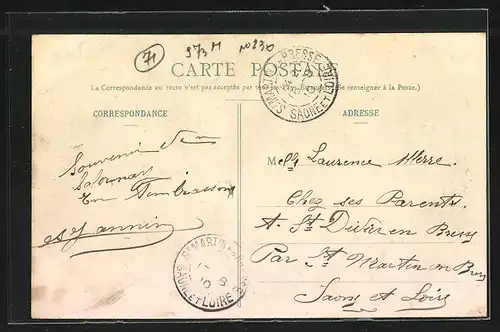 71 973M No 230
CARTE POSTALE
La Correspondance au recto n'est pas acceptée par tous les pays étrangers. (Se renseigner à la Poste.)
CORRESPONDANCE
ADRESSE
SAONE ET LOIRE
Souvenir de
Salornay
En
Jannin
Melle Laurence Merre.
Chez ses Parents
A St Didier en Bresse
Par St Martin en Bresse
Saone et Loire
ST MARTIN EN BRESSE
SAONE ET LOIRE